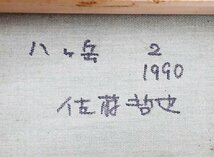 八ヶ岳 2
1990
佐藤哲也